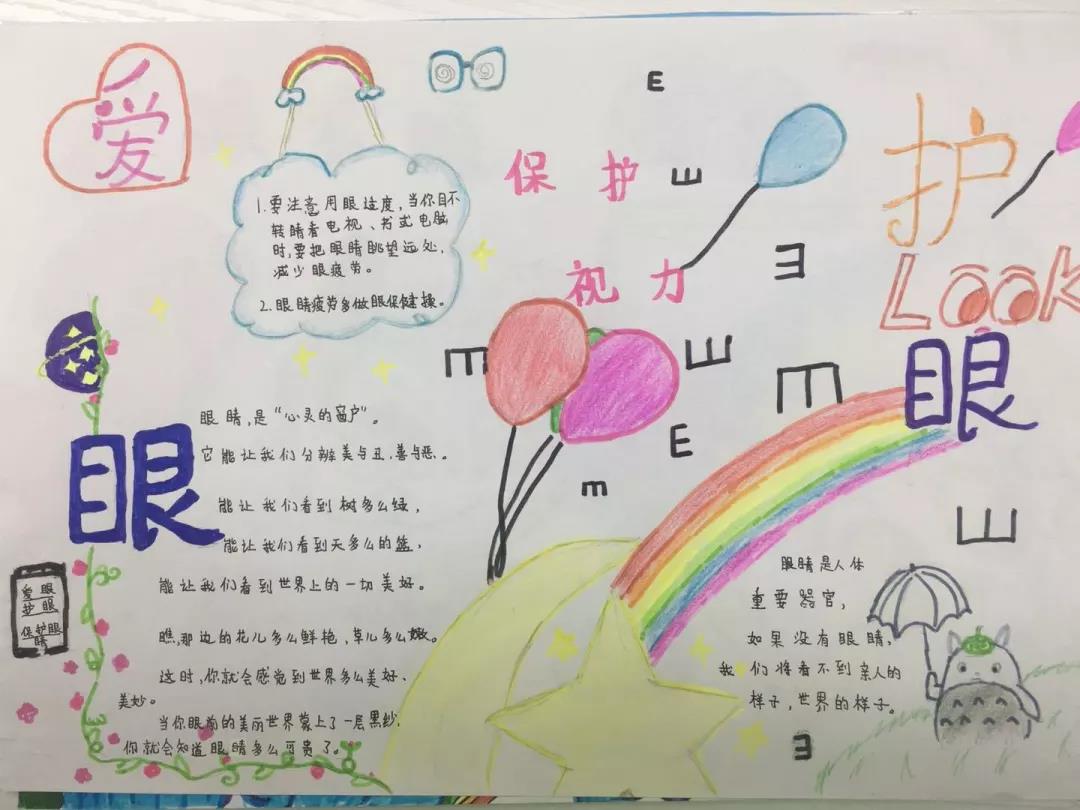 爱
护
眼
眼
Look
保护
视力
1.要注意用眼过度,当你目不
转睛看电视、书或电脑
时,要把眼睛眺望远处,
减少眼疲劳。
2.眼睛疲劳多做眼保健操。
眼睛,是“心灵的窗户”。
它能让我们分辨美与丑、善与恶、。
能让我们看到树多么绿,
能让我们看到天多么的篮,
能让我们看到世界上的一切美好。
瞧,那边的花儿多么鲜艳,草儿多么嫩。
这时,你就会感觉到世界多么美好、
美妙。
当你眼前的美丽世界蒙上了一层黑纱,
你就会知道眼睛多么可贵了。
爱眼
护眼
保护眼
睛
E
E
E
E
E
E
E
E
E
E
眼睛是人体
重要器官,
如果没有眼睛,
我们将看不到亲人的
样子,世界的样子。